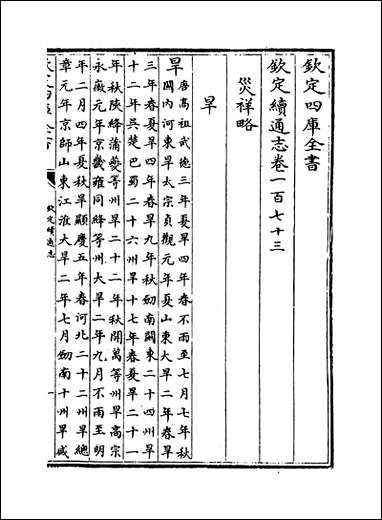 欽定四庫全書
欽定續通志卷一百七十三
災祥略
旱
旱 唐高祖武德三年夏旱四年春不雨至七月七年秋
關內河東旱太宗貞觀元年夏山東大旱二年春旱
三年春夏旱四年春旱九年秋劒南關東二十四州旱
十二年吳楚巴蜀二十六州旱十七年春夏旱二十一
年秋陜絳蒲夔等州旱二十二年秋開萬等州旱高宗
永徽元年京畿雍同絳等州大旱二年九月不雨至明
年二月四年夏秋旱顯慶五年春河北二十二州旱總
章元年京師山東江淮大旱二年七月劒南十州旱咸
欽定續通志
一